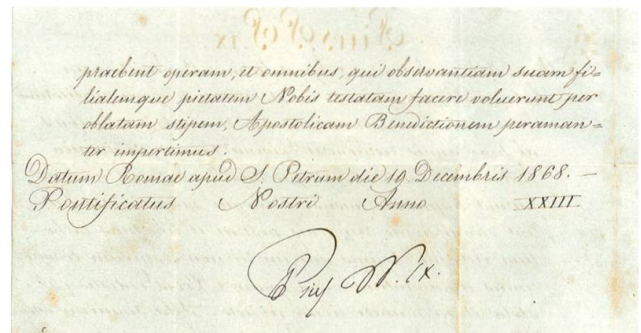 praebent operam, et omnibus, qui observantiam suam fi-
lialemque pietatem Nobis testatam facere voluerunt per
oblatam stipem, Apostolicam Benedictionem peraman-
ter impertimus.
Datum Romae apud S. Petrum die 10 Decembris 1868.—
Pontificatus Nostri Anno XXIII
Pius PP. IX.